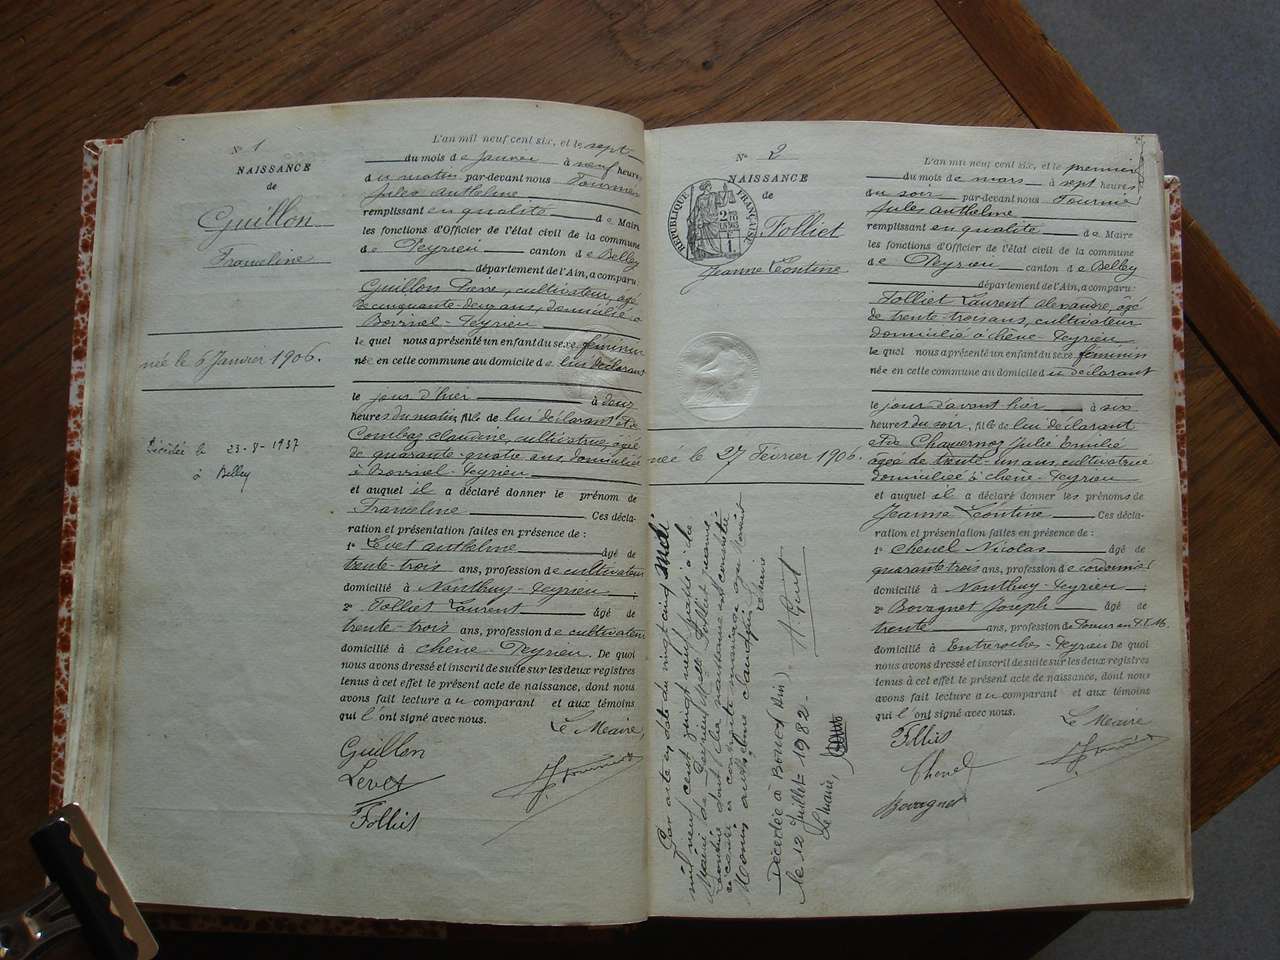 N° 1
NAISSANCE
de
Guillon
Franceline
née le 6 Janvier 1906.
Décédée le 23-8-1937
à Belley
L'an mil neuf cent six, et le sept
du mois de Janvier à neuf heures
du matin par-devant nous Fournier
Jules Anthelme
remplissant en qualité de Maire
les fonctions d'Officier de l'état civil de la commune
de Peyrieu canton de Belley
département de l'Ain, a comparu
Guillon Pierre, cultivateur, âgé
de cinquante-deux ans, domicilié à
Peyrieu
le quel nous a présenté un enfant du sexe féminin
née en cette commune au domicile de lui déclarant
le jour d'hier à
heures du matin, fille de lui déclarant et de
Combaz Claudine, cultivatrice, âgée
de quarante-quatre ans, domiciliée
à Peyrieu
et auquel il a déclaré donner le prénom de
Franceline Ces décla-
ration et présentation faites en présence de :
1° Levet Anthelme âgé de
trente-trois ans, profession de cultivateur
domicilié à Nanthuy-Peyrieu
2° Folliet Laurent âgé de
trente-trois ans, profession de cultivateur
domicilié à Chêne-Peyrieu. De quoi
nous avons dressé et inscrit de suite sur les deux registres
tenus à cet effet le présent acte de naissance, dont nous
avons fait lecture au comparant et aux témoins
qui l'ont signé avec nous. Le Maire,
Guillon
Levet
Folliet
N° 2
NAISSANCE
de
RÉPUBLIQUE FRANÇAISE
Folliet
Jeanne Léontine
née le 27 Février 1906.
Par acte en date du vingt cinq
mil neuf cent vingt neuf passé à la
Mairie de Peyrieu Melle Folliet Jeanne
Léontine dont la naissance est constatée
ci-contre a contracté mariage avec
Anthelme Claudius
Le Maire
Décédée à Bons (Ain)
le 12 Juillet 1982.
Le Maire,
L'an mil neuf cent six, et le premier
du mois de mars à sept heures
du soir par-devant nous Fournier
Jules Anthelme
remplissant en qualité de Maire
les fonctions d'Officier de l'état civil de la commune
de Peyrieu canton de Belley
département de l'Ain, a comparu
Folliet Laurent Alexandre, âgé
de trente-trois ans, cultivateur
domicilié à Chêne-Peyrieu
le quel nous a présenté un enfant du sexe féminin
née en cette commune au domicile du déclarant
le jour d'avant hier à six
heures du soir, fille de lui déclarant
et de Julie Emilie
âgée de trente-un ans, cultivatrice
domiciliée à Chêne-Peyrieu
et auquel il a déclaré donner les prénoms de
Jeanne Léontine Ces décla-
ration et présentation faites en présence de :
1° Chenel Nicolas âgé de
quarante trois ans, profession de cordonnier
domicilié à Nanthuy-Peyrieu
2° Bovagnet Joseph âgé de
trente ans, profession de
domicilié à Entreroche-Peyrieu De quoi
nous avons dressé et inscrit de suite sur les deux registres
tenus à cet effet le présent acte de naissance, dont nous
avons fait lecture au comparant et aux témoins
qui l'ont signé avec nous. Le Maire
Folliet
Chenel
Bovagnet